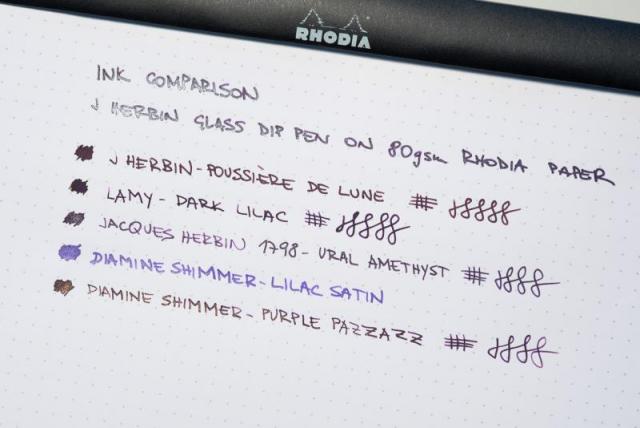 RHODIA
INK COMPARISON
J HERBIN GLASS DIP PEN ON 80gsm RHODIA PAPER
J HERBIN - POUSSIÈRE DE LUNE
LAMY - DARK LILAC
JACQUES HERBIN 1798 - URAL AMETHYST
DIAMINE SHIMMER - LILAC SATIN
DIAMINE SHIMMER - PURPLE PAZZAZZ